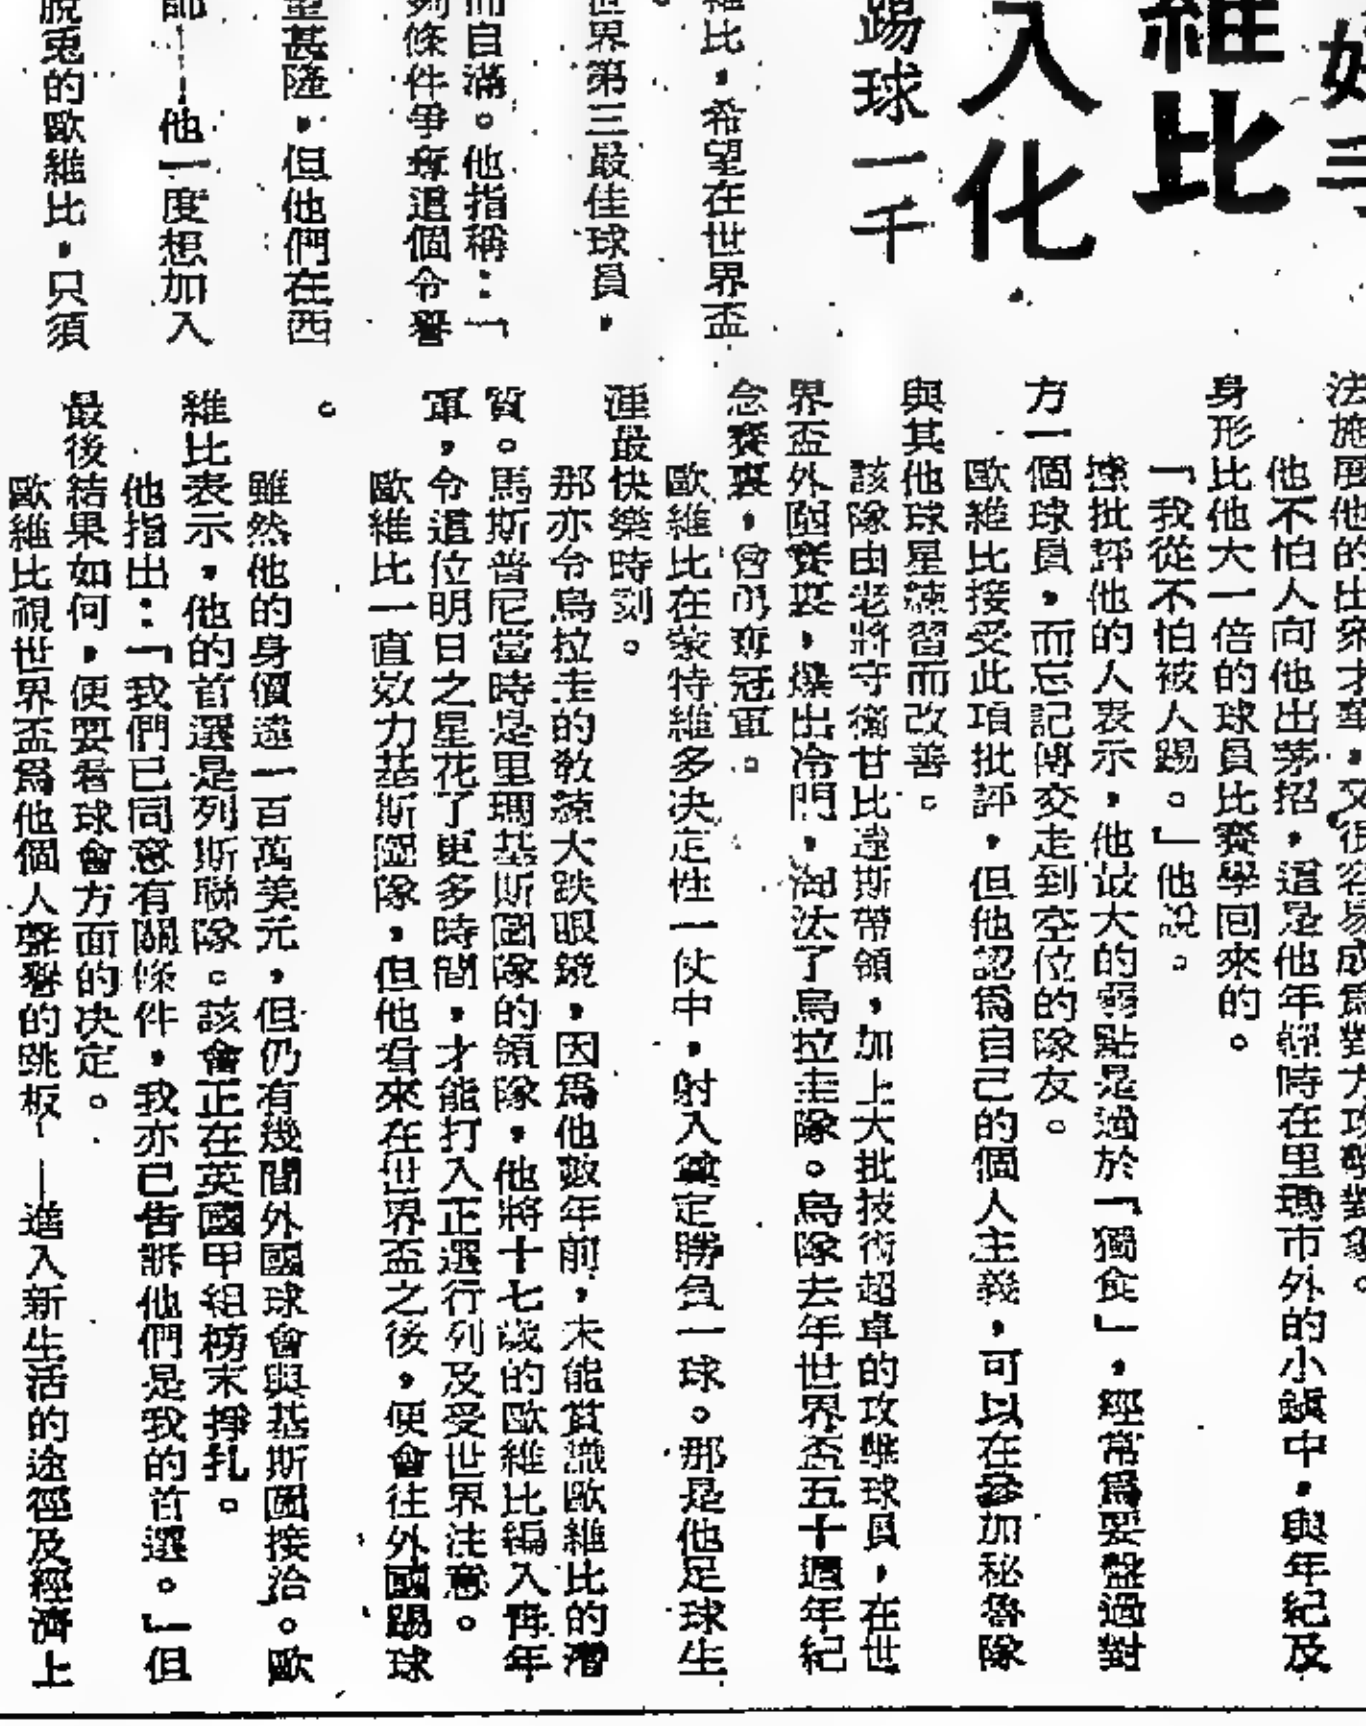 好手
維比
入化
踢球一千
維比，希望在世界盃
世界第三最佳球員，
而自滿。他指稱：「
列條件爭奪這個令譽
甚隆，但他們在西
師——他一度想加入
脫兔的歐維比，只須
法施展他的出衆才華，又很容易成爲對方攻擊對象。
他不怕人向他出茅招，這是他年輕時在里瑪市外的小鎭中，與年紀及
身形比他大一倍的球員比賽學回來的。
「我從不怕被人踢。」他說。
據批評他的人表示，他最大的弱點是過於「獨食」，經常爲要盤過對
方一個球員，而忘記傳交走到空位的隊友。
歐維比接受此項批評，但他認爲自己的個人主義，可以在參加秘魯隊
與其他球星練習而改善。
該隊由老將守衞甘比達斯帶領，加上大批技術超卓的攻擊球員，在世
界盃外圍賽裏，爆出冷門，淘汰了烏拉圭隊。烏隊去年世界盃五十週年紀
念賽裏，曾勇奪冠軍。
歐維比在蒙特維多決定性一仗中，射入奠定勝負一球。那是他足球生
涯最快樂時刻。
那亦令烏拉圭的敎練大跌眼鏡，因爲他數年前，未能賞識歐維比的潛
質。馬斯普尼當時是里瑪基斯圖隊的領隊，他將十七歲的歐維比編入靑年
軍，令這位明日之星花了更多時間，才能打入正選行列及受世界注意。
歐維比一直效力基斯圖隊，但他看來在世界盃之後，便會往外國踢球
。
雖然他的身價達一百萬美元，但仍有幾間外國球會與基斯圖接洽。歐
維比表示，他的首選是列斯聯隊。該會正在英國甲組榜末掙扎。
他指出：「我們已同意有關條件，我亦已告訴他們是我的首選。」但
最後結果如何，便要看球會方面的決定。
歐維比視世界盃爲他個人聲譽的跳板——進入新生活的途徑及經濟上